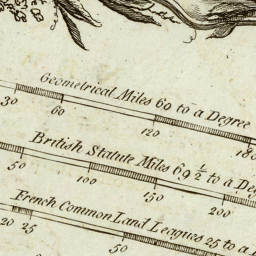 Geometrical Miles 60 to a Degree
30 60 120 180
British Statute Miles 69 1/2 to a De
50 100 150 200
French Common Land Leagues 25 to a
20 25 50